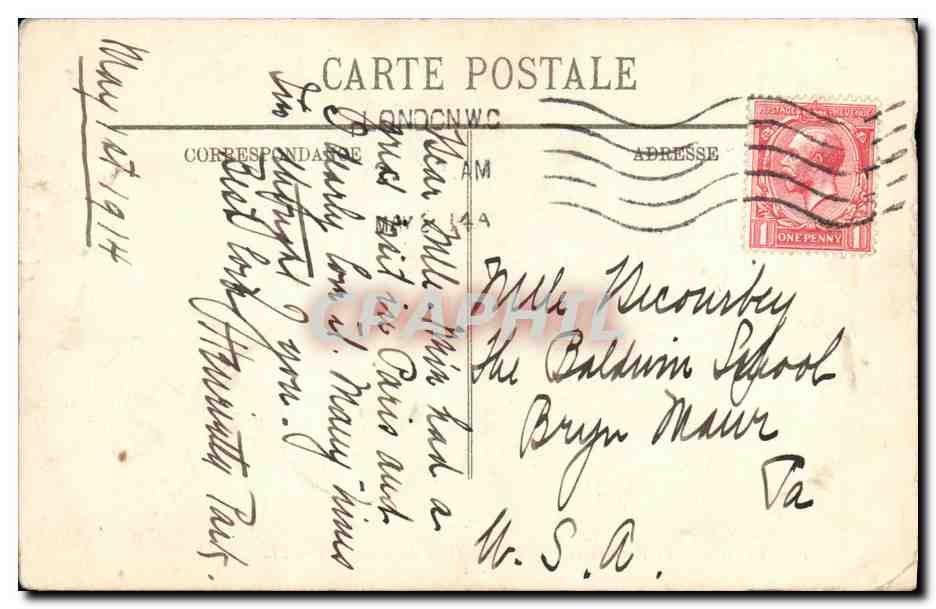 CARTE POSTALE
CORRESPONDANCE
ADRESSE
LONDON W.C
AM
MAY 2 14 A
POSTAGE REVENUE
ONE PENNY
May 1st 1914
Dear Mlle. Have had a
nice visit in Paris and
Many times
I've thought of you.
Best love
Mlle Recourbey
The Baldwin School
Bryn Mawr
Pa
U. S. A.
CPAPHIL